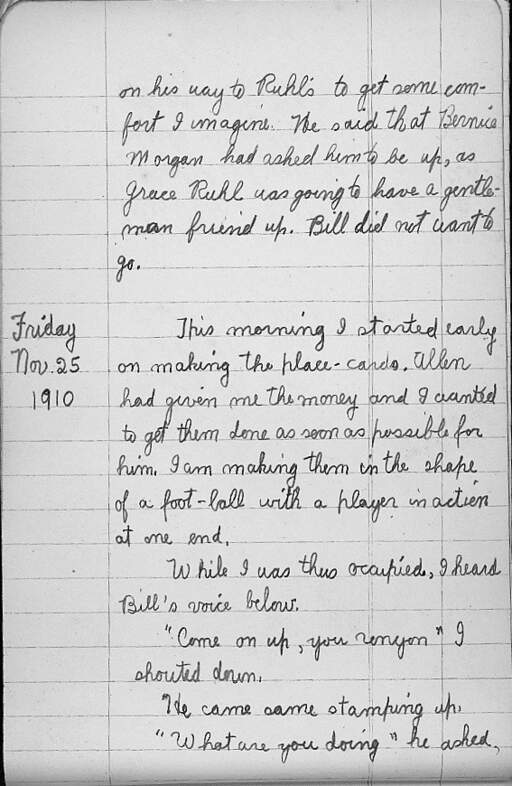 on his way to Ruhl's to get some com-
fort I imagine. He said that Bernice
Morgan had asked him to be up, as
Grace Ruhl was going to have a gentle-
man friend up. Bill did not want to
go.
Friday
Nov. 25
1910
This morning I started early
on making the place-cards. Allen
had given me the money and I wanted
to get them done as soon as possible for
him. I am making them in the shape
of a foot-ball with a player in action
at one end.
While I was thus occupied, I heard
Bill's voice below.
"Come on up, you" I
shouted down.
He came same stamping up.
"What are you doing" he asked,